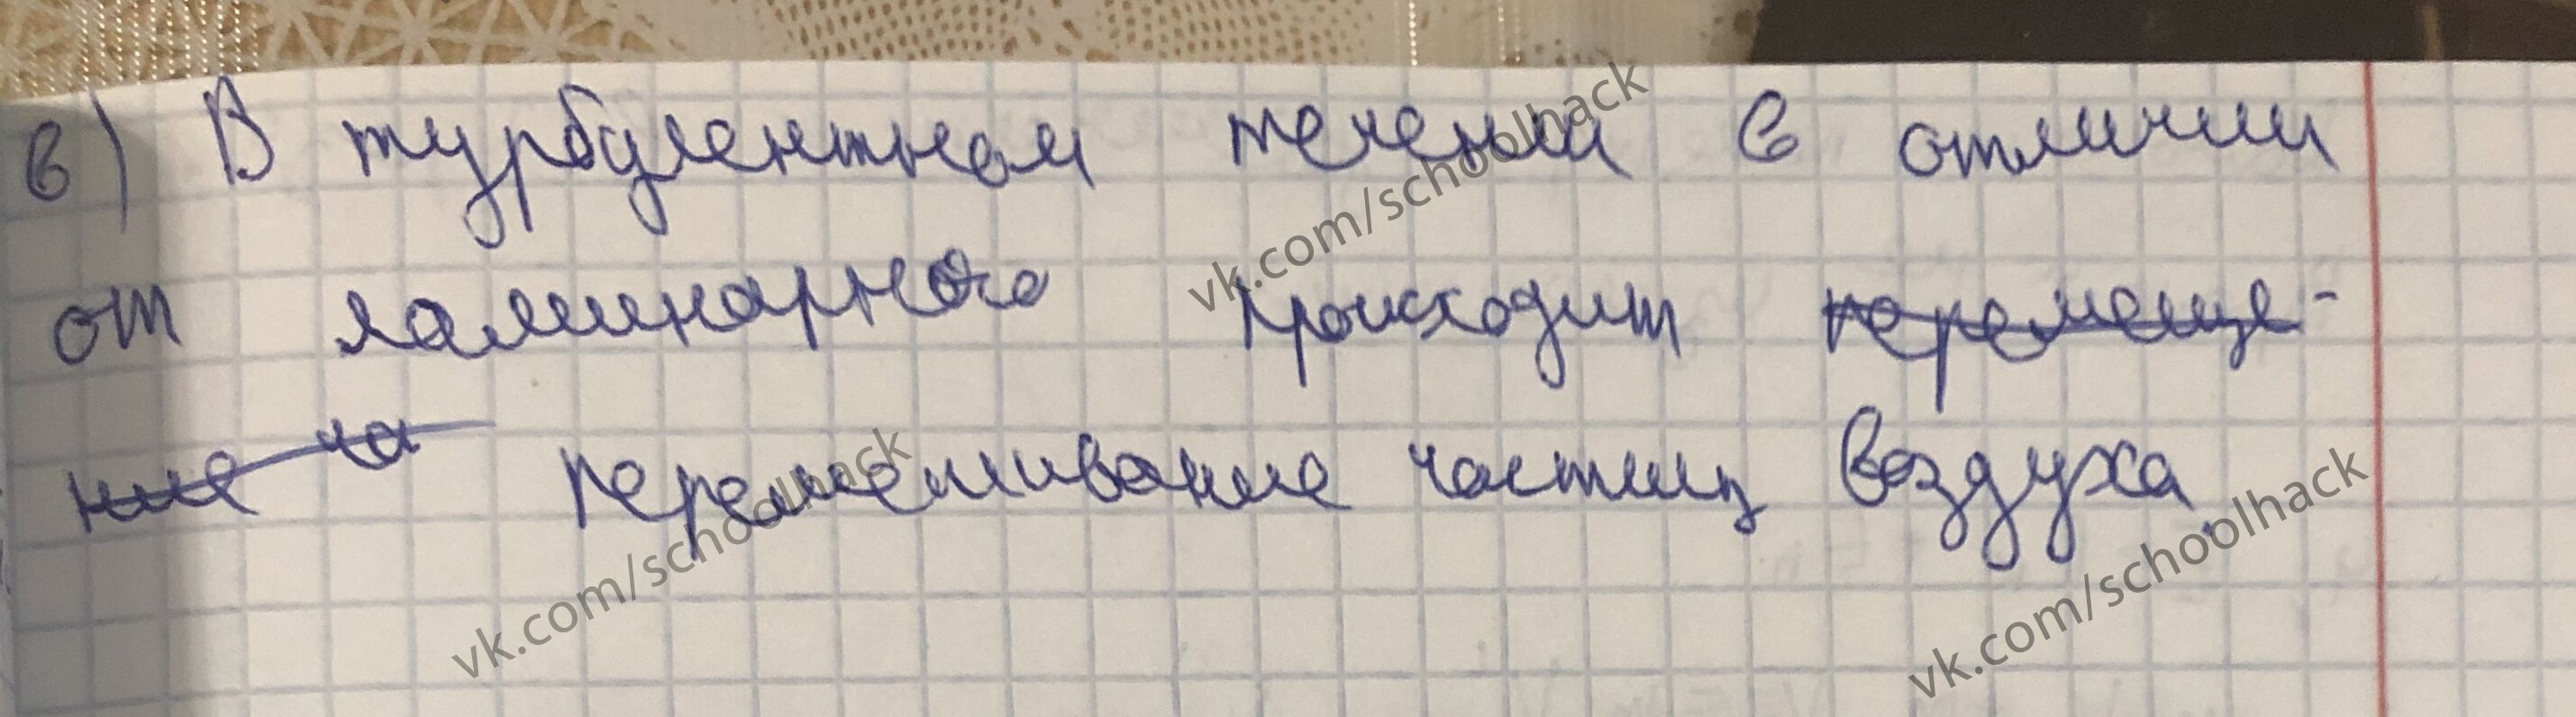 в) В турбулентном течении в отличии
от ламинарного происходит перемеще-
ние ча перемешивание частиц воздуха.
vk.com/schoolhack
vk.com/schoolhack
vk.com/schoolhack